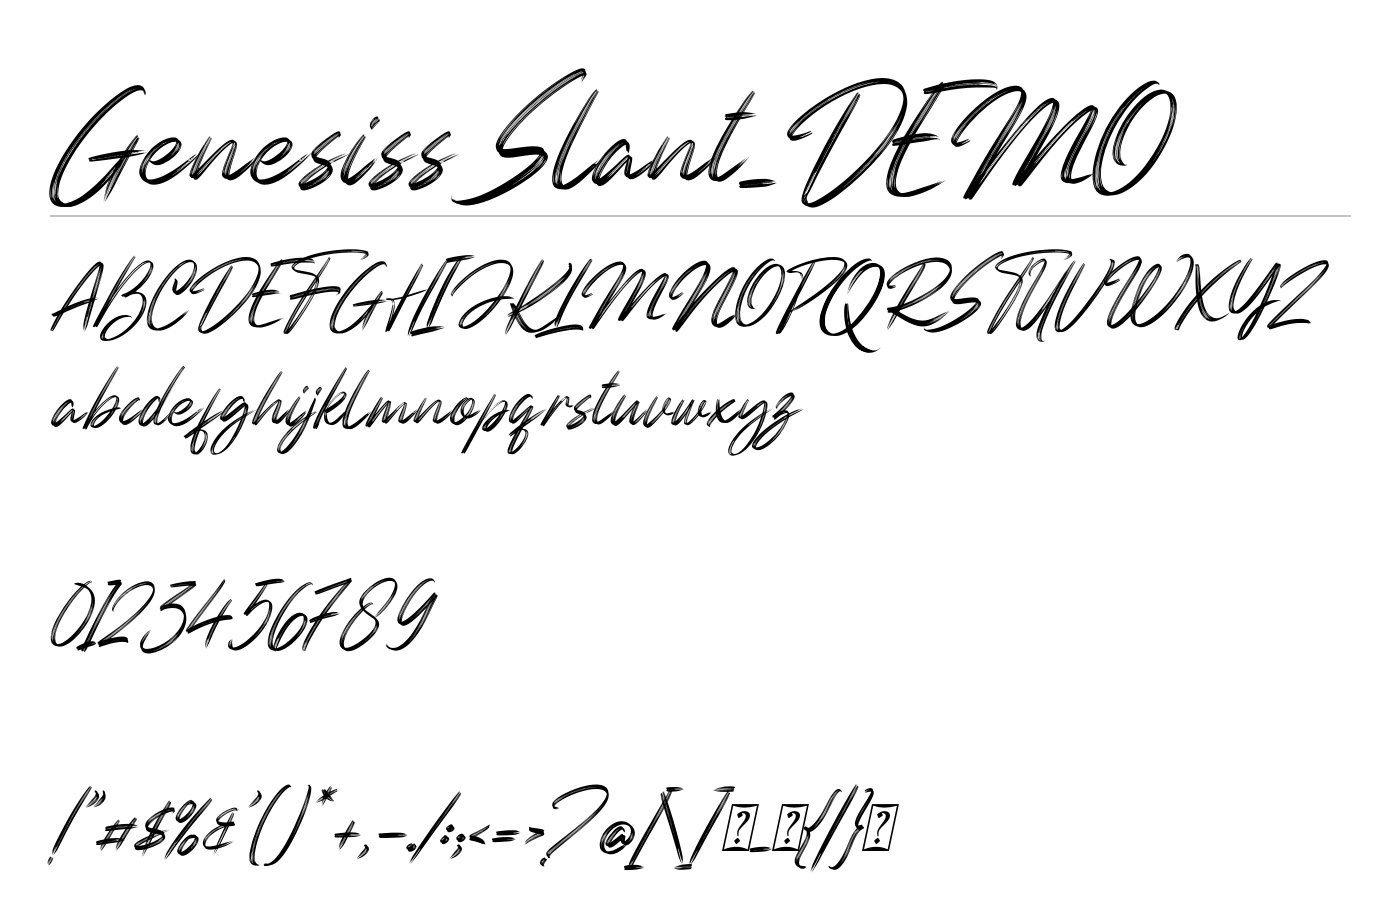 Genesiss Slant_DEMO
ABCDEFGHIJKLMNOPQRSTUVWXYZ
abcdefghijklmnopqrstuvwxyz
0123456789
!"#$%&'()*+,-./:;<=>?@[\]_{|}